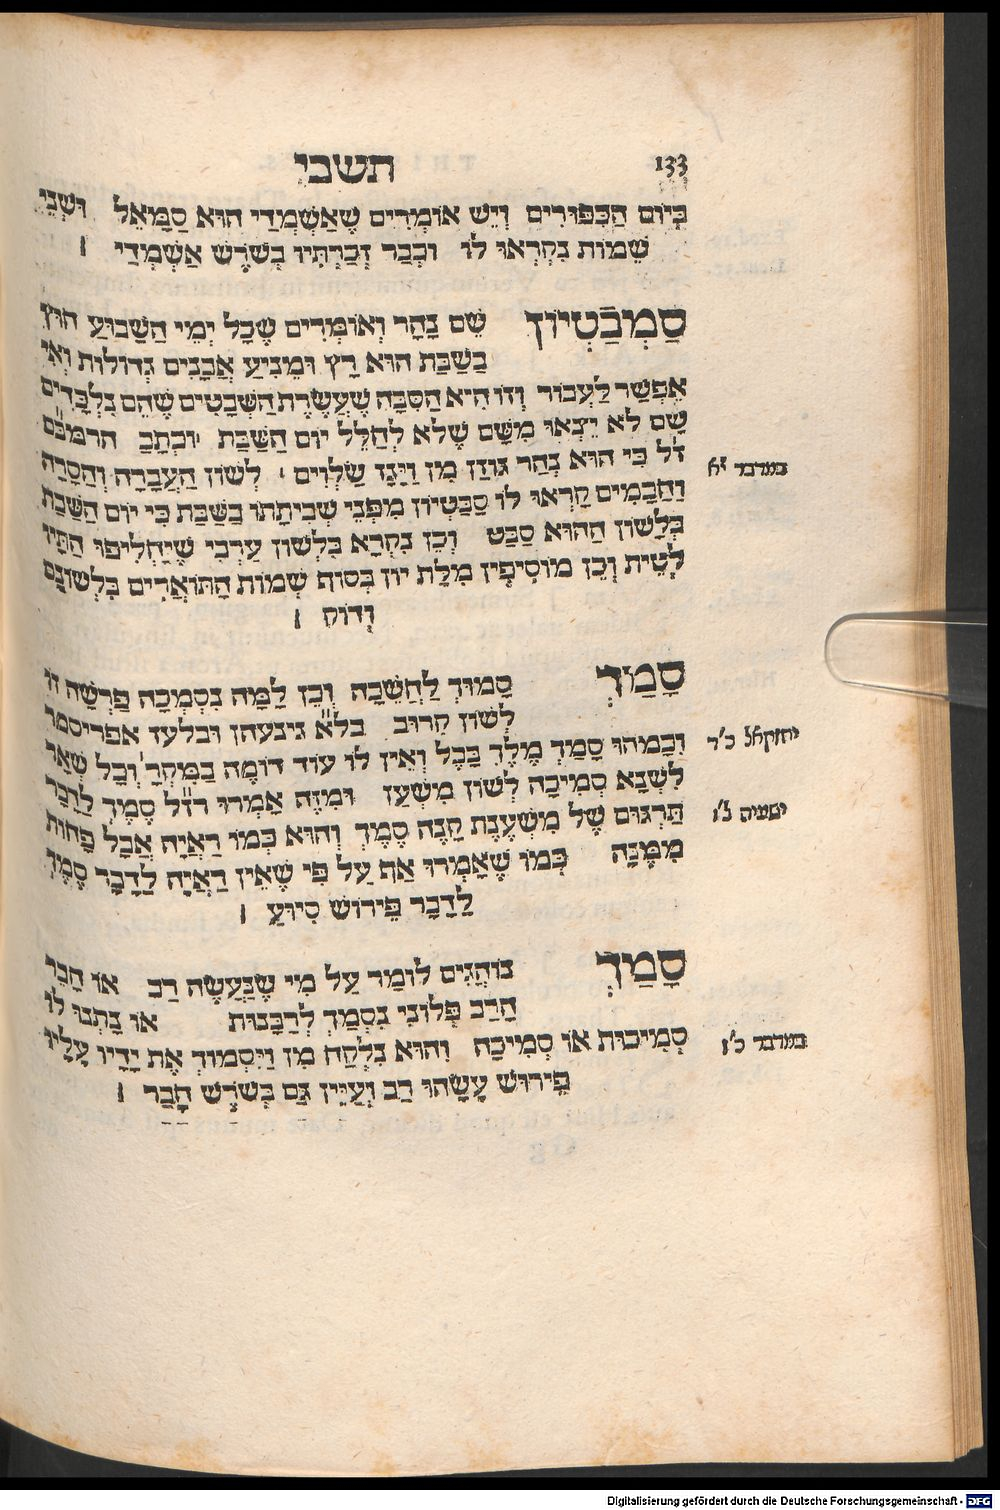 133 תשבי
בְּיוֹם הַכִּפּוּרִים וְיֵשׁ אוֹמְרִים שֶׁאַשְׁמְדַי הוּא סַמָּאֵל וּשְׁנֵי
שֵׁמוֹת נִקְרְאוּ לוֹ וּכְבָר זְכַרְתִּיו בְּשֹׁרֶשׁ אַשְׁמְדַי ׀
סַמְבַּטְיוֹן שֵׁם נָהָר וְאוֹמְרִים שֶׁכָּל יְמֵי הַשָּׁבוּעַ חוּץ
בַּשַּׁבָּת הוּא רָץ וּמַנִּיעַ אֲבָנִים גְּדוֹלוֹת וְאִי
אֶפְשַׁר לַעְבוֹר וְזוֹ הִיא הַסִּבָּה שֶׁעֲשֶׂרֶת הַשְּׁבָטִים שֶׁהֵם נִלְכָּדִים
שָׁם לֹא יֵצְאוּ מִשָּׁם שֶׁלֹּא לְחַלֵּל יוֹם הַשַּׁבָּת וּכְתַב הרמב״ם
ז״ל כִּי הוּא נְהַר גּוֹזָן מִן וַיָּגָז שַׂלְוִים ׳ לְשׁוֹן הַעֲבָרָה וְהַסָרָה
במדבר י״א
וַחֲכָמִים קָרְאוּ לוֹ סַבַּטְיוֹן מִפְּנֵי שְׁבִיתָתוֹ בַּשַּׁבָּת כִּי יוֹם הַשַּׁבָּת
בִּלְשׁוֹן הַהוּא סַבַּט וְכֵן נִקְרָא בִּלְשׁוֹן עַרְבִי שֶׁיַּחֲלִיפוּ הַתָּיו
לְטֵית וְכֵן מוֹסִיפִין מִלַּת יוֹן בְּסוֹף שְׁמוֹת הַתּוֹאֲרִים בִּלְשׁוֹנָם
וְדוֹק ׀
סָמַךְ סָמוּךְ לַחֲשֵׁכָה וְכֵן לָמָּה נִסְמְכָה פַּרְשָׁה זוֹ
לְשׁוֹן קֵרוּב בל״א גינעהן ובלעז אפריסמר
וְכָמֹהוּ סָמַךְ מֶלֶךְ בָּבֶל וְאֵין לוֹ עוֹד דּוֹמֶה בַּמִּקְרָ׳ וְכָל שְׁאַר
יחזקאל כ״ד
לִשְׁנָא סְמִיכָה לְשׁוֹן מִשְׁעָן וּמִזֶּה אָמְרוּ רז״ל סֶמֶךְ לַדָּבָר
תַּרְגּוּם שֶׁל מִשְׁעֶנֶת קָנֶה סֶמֶךְ וְהוּא כְּמוֹ רְאָיָה אֲבָל פָּחוֹת
ישעיה ל״ו
מִמֶּנָּה כְּמוֹ שֶׁאָמְרוּ אַף עַל פִּי שֶׁאֵין רְאָיָה לַדָּבָר סֶמֶךְ
לַדָּבָר פֵּירוּשׁ סִיּוּעַ ׀
סָמַךְ נוֹהֲגִים לוֹמַר עַל מִי שֶׁנַּעֲשֶׂה רַב אוֹ חָבֵר
הָרַב פְּלוֹנִי נִסְמַךְ לְרַבָּנוּת אוֹ נָתְנוּ לוֹ
סְמִיכוּת אוֹ סְמִיכָה וְהוּא נִלְקַח מִן וַיִּסְמוֹךְ אֶת יָדָיו עָלָיו
במדבר כ״ז
פֵּירוּשׁ עָשָׂהוּ רַב וְעַיֵּין גַּם בְּשֹׁרֶשׁ חָבַר ׀
Digitalisierung gefördert durch die Deutsche Forschungsgemeinschaft - DFG